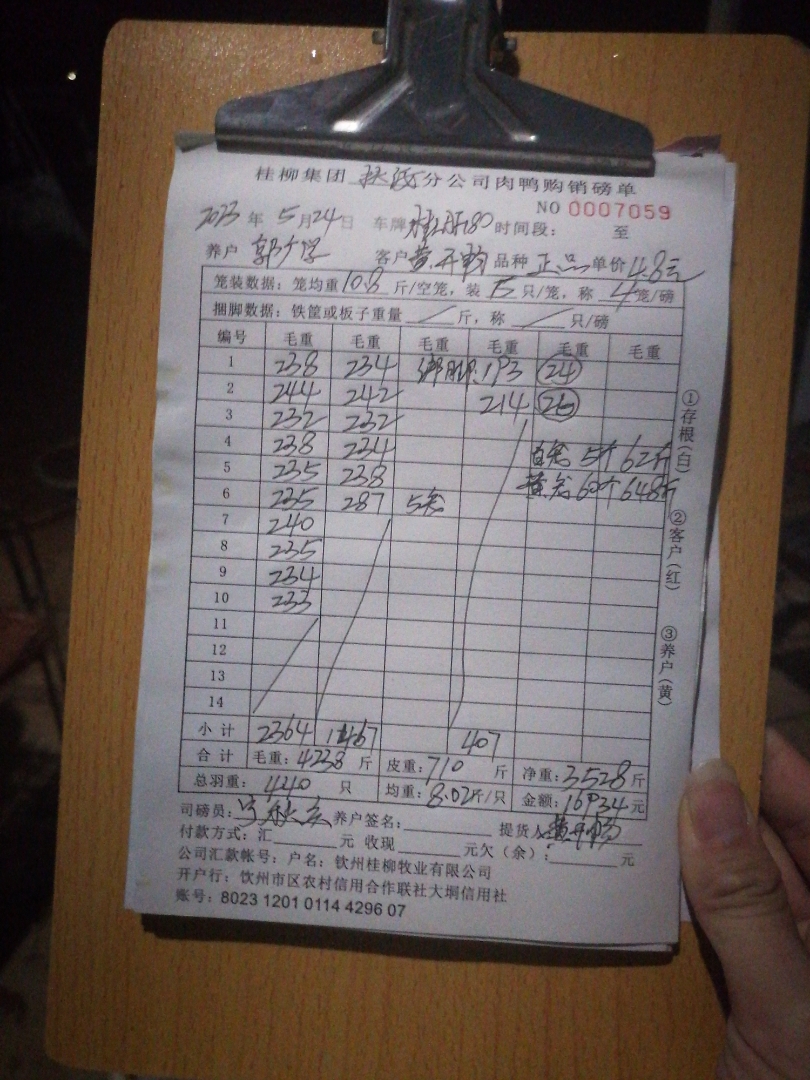 桂柳集团 分公司肉鸭购销磅单
NO 0007059
2023年 5月24日 车牌 时间段: 至
养户 客户 品种 正品 单价 4.8元
笼装数据: 笼均重10.8斤/空笼, 装 只/笼, 称 4笼/磅
捆脚数据: 铁筐或板子重量 / 斤, 称 / 只/磅
编号 毛重 毛重 毛重 毛重 毛重 毛重
1 238 234 绑脚: 193 24
2 244 242 214 26
3 232 232
4 238 234 5个 62斤
5 235 238 60个 648斤
6 235 287 5笼
7 240
8 235
9 234
10 233
11
12
13
14
小计 2364 1467 407
合计 毛重: 4238 斤 皮重: 710 斤 净重: 3528斤
总羽重: 440 只 均重: 8.02斤/只 金额: 16934元
司磅员: 养户签名: 提货人
付款方式: 汇 元 收现 元欠(余): 元
公司汇款帐号: 户名: 钦州桂柳牧业有限公司
开户行: 钦州市区农村信用合作联社大垌信用社
账号: 8023 1201 0114 4296 07
①存根(白)
②客户(红)
③养户(黄)